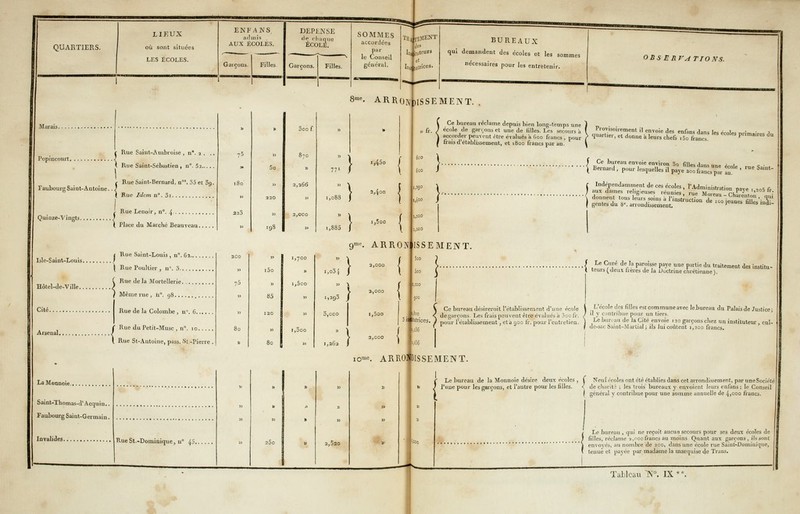 QUARTIERS.
LIEUX
où sont situées
LES ÉCOLES.
ENFANS
admis
AUX ÉCOLES.
Garçons. Filles.
DÉPENSE
de chaque
ÉCOLE.
Garçons. Filles.
SOMMES
accordées
par
le Conseil
général.
BUREAUX
qui demandent des écoles et les sommes
nécessaires pour les entretenir.
OBSERVATIONS.
8me. ARRONDISSEMENT.
Marais » » 500 f » » » fr.
Ce bureau réclame depuis bien long-temps une
école de garçons et une de filles. Les secours à
accorder peuvent être évalués à 600 francs, pour
frais d'établissement, et 1800 francs par an.
Provisoirement il envoie des enfans dans les écoles primaires du
quartier, et donne à leurs chefs 150 francs.
Popincourt
Rue Saint-Ambroise, n°. 2 75 » 870 »
Rue Saint-Sébastien, n°. 52 » 50 » 771
1,450
600
600
Ce bureau envoie environ 50 filles dans une école, rue Saint-
Bernard, pour lesquelles il paye 200 francs par an.
Faubourg Saint-Antoine
Rue Saint-Bernard, nos. 35 et 39. 180 » 2,266 »
Rue Idem n°. 31 » 220 » 1,088
2,400
Indépendamment de ces écoles, l'Administration paye 1,205 fr.
aux dames religieuses réunies, rue Moreau-Charenton, qui
donnent tous leurs soins à l'instruction de 100 jeunes filles indi-
gentes du 8e. arrondissement.
Quinze-Vingts
Rue Lenoir, n°. 4 225 » 2,000 »
Place du Marché Beauveau » 198 » 1,885
1,800
9me. ARRONDISSEMENT.
Isle-Saint-Louis
Rue Saint-Louis, n°. 62 200 » 1,700 »
Rue Poultier, n°. 3 » 150 » 1,034
2,000
Le Curé de la paroisse paye une partie du traitement des institu-
teurs (deux frères de la Doctrine chrétienne).
Hôtel-de-Ville
Rue de la Mortellerie 75 » 1,500 »
Même rue, n°. 98 » 85 » 1,293
2,000
Cité
Rue de la Colombe, n°. 6 » 120 » 3,000 1,500
Ce bureau désireroit l'établissement d'une école
de garçons. Les frais peuvent être évalués à 300 fr.
pour l'établissement, et à 900 fr. pour l'entretien.
L'école des filles est commune avec le bureau du Palais de Justice;
il y contribue pour un tiers.
Le bureau de la Cité envoie 120 garçons chez un instituteur, cul-
de-sac Saint-Martial; ils lui coûtent 1,200 francs.
Arsenal
Rue du Petit-Musc, n°. 10 80 » 1,500 »
Rue St-Antoine, pass. St-Pierre. » 80 » 1,262
2,000
10me. ARRONDISSEMENT.
La Monnoie » » » » »
Le bureau de la Monnoie désire deux écoles,
l'une pour les garçons, et l'autre pour les filles.
Neuf écoles ont été établies dans cet arrondissement, par une Société
de charité; les trois bureaux y envoient leurs enfans; le Conseil
général y contribue pour une somme annuelle de 4,000 francs.
Saint-Thomas-d'Acquin » » » » »
Faubourg Saint-Germain » » » » »
Invalides Rue St.-Dominique, n° 45 » 250 » 2,820 »
Le bureau, qui ne reçoit aucun secours pour ses deux écoles de
filles, réclame 2,000 francs au moins. Quant aux garçons, ils sont
envoyés, au nombre de 200, dans une école rue Saint-Dominique,
tenue et payée par madame la marquise de Trans.
Tableau N°. IX **.